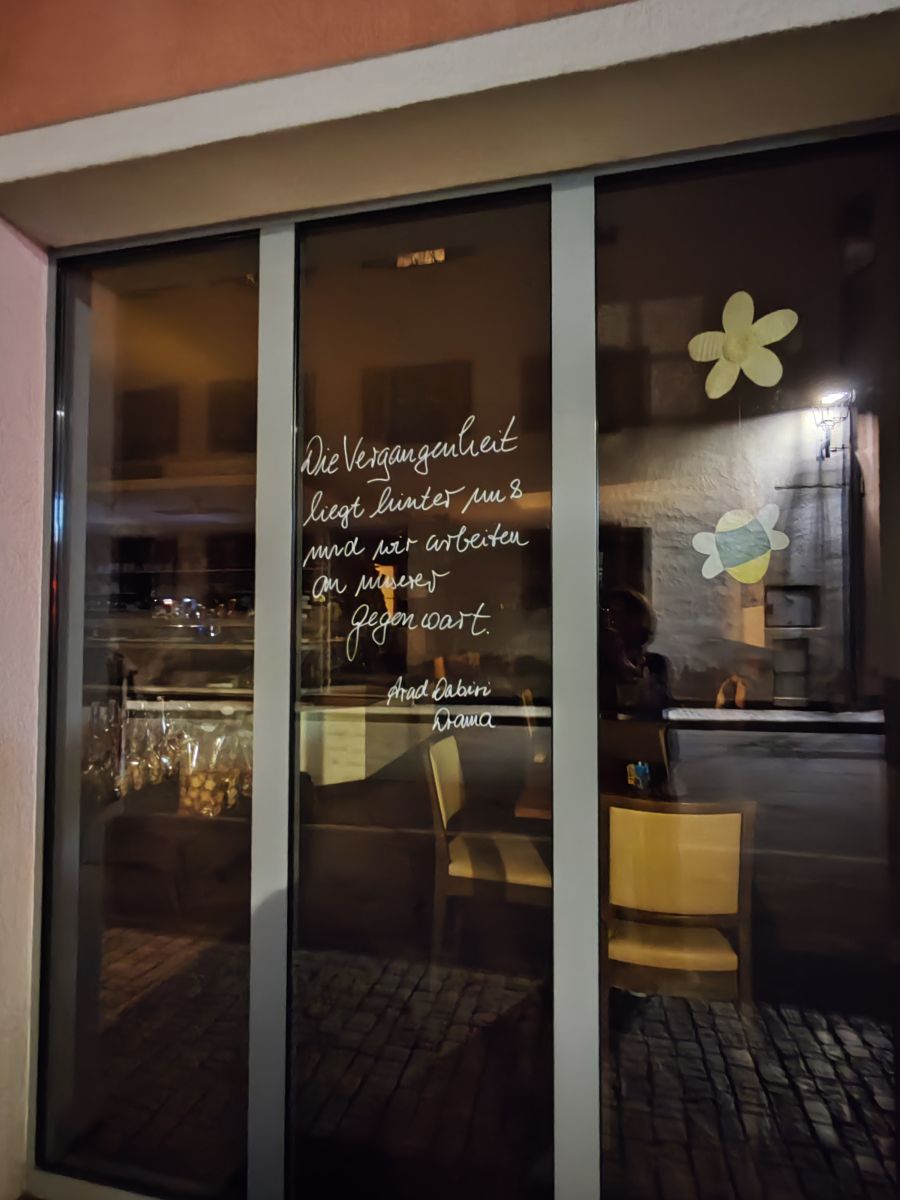 Die Vergangenheit
liegt hinter uns
und wir arbeiten
an unserer
gegenwart.
Arad Dabiri
Drama